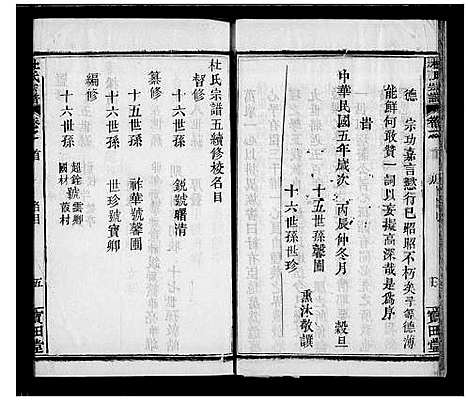 德宗功嘉言懿行已昭昭不朽矣予等德薄
能鮮何敢贊一詞以妄擬高深哉是為序
旹
中華民國五年歲次丙辰仲冬月穀旦
十五世孫馨圃
十六世孫世珍
熏沐敬譔
杜氏宗譜五續修校名目
督修
十六世孫銳號曙清
纂修
十五世孫祚華號馨圃
十六世孫世珍號寶卿
編修
十六世孫
國材號霞村
杜氏宗譜
卷之首
名目
五
寶田堂